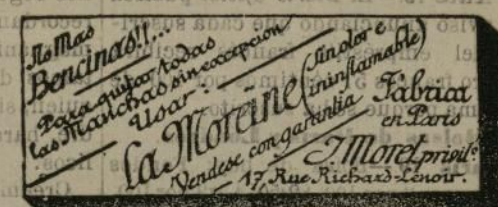 No Mas
Bencinas!!...
Para quitar todas
las Manchas sin excepcion
Usar:
La Moreine (sin olor é
ininflamable)
Vendese con garantia
Fábrica
en Paris
J. Morel, privilº
17, Rue Richard-Lenoir.